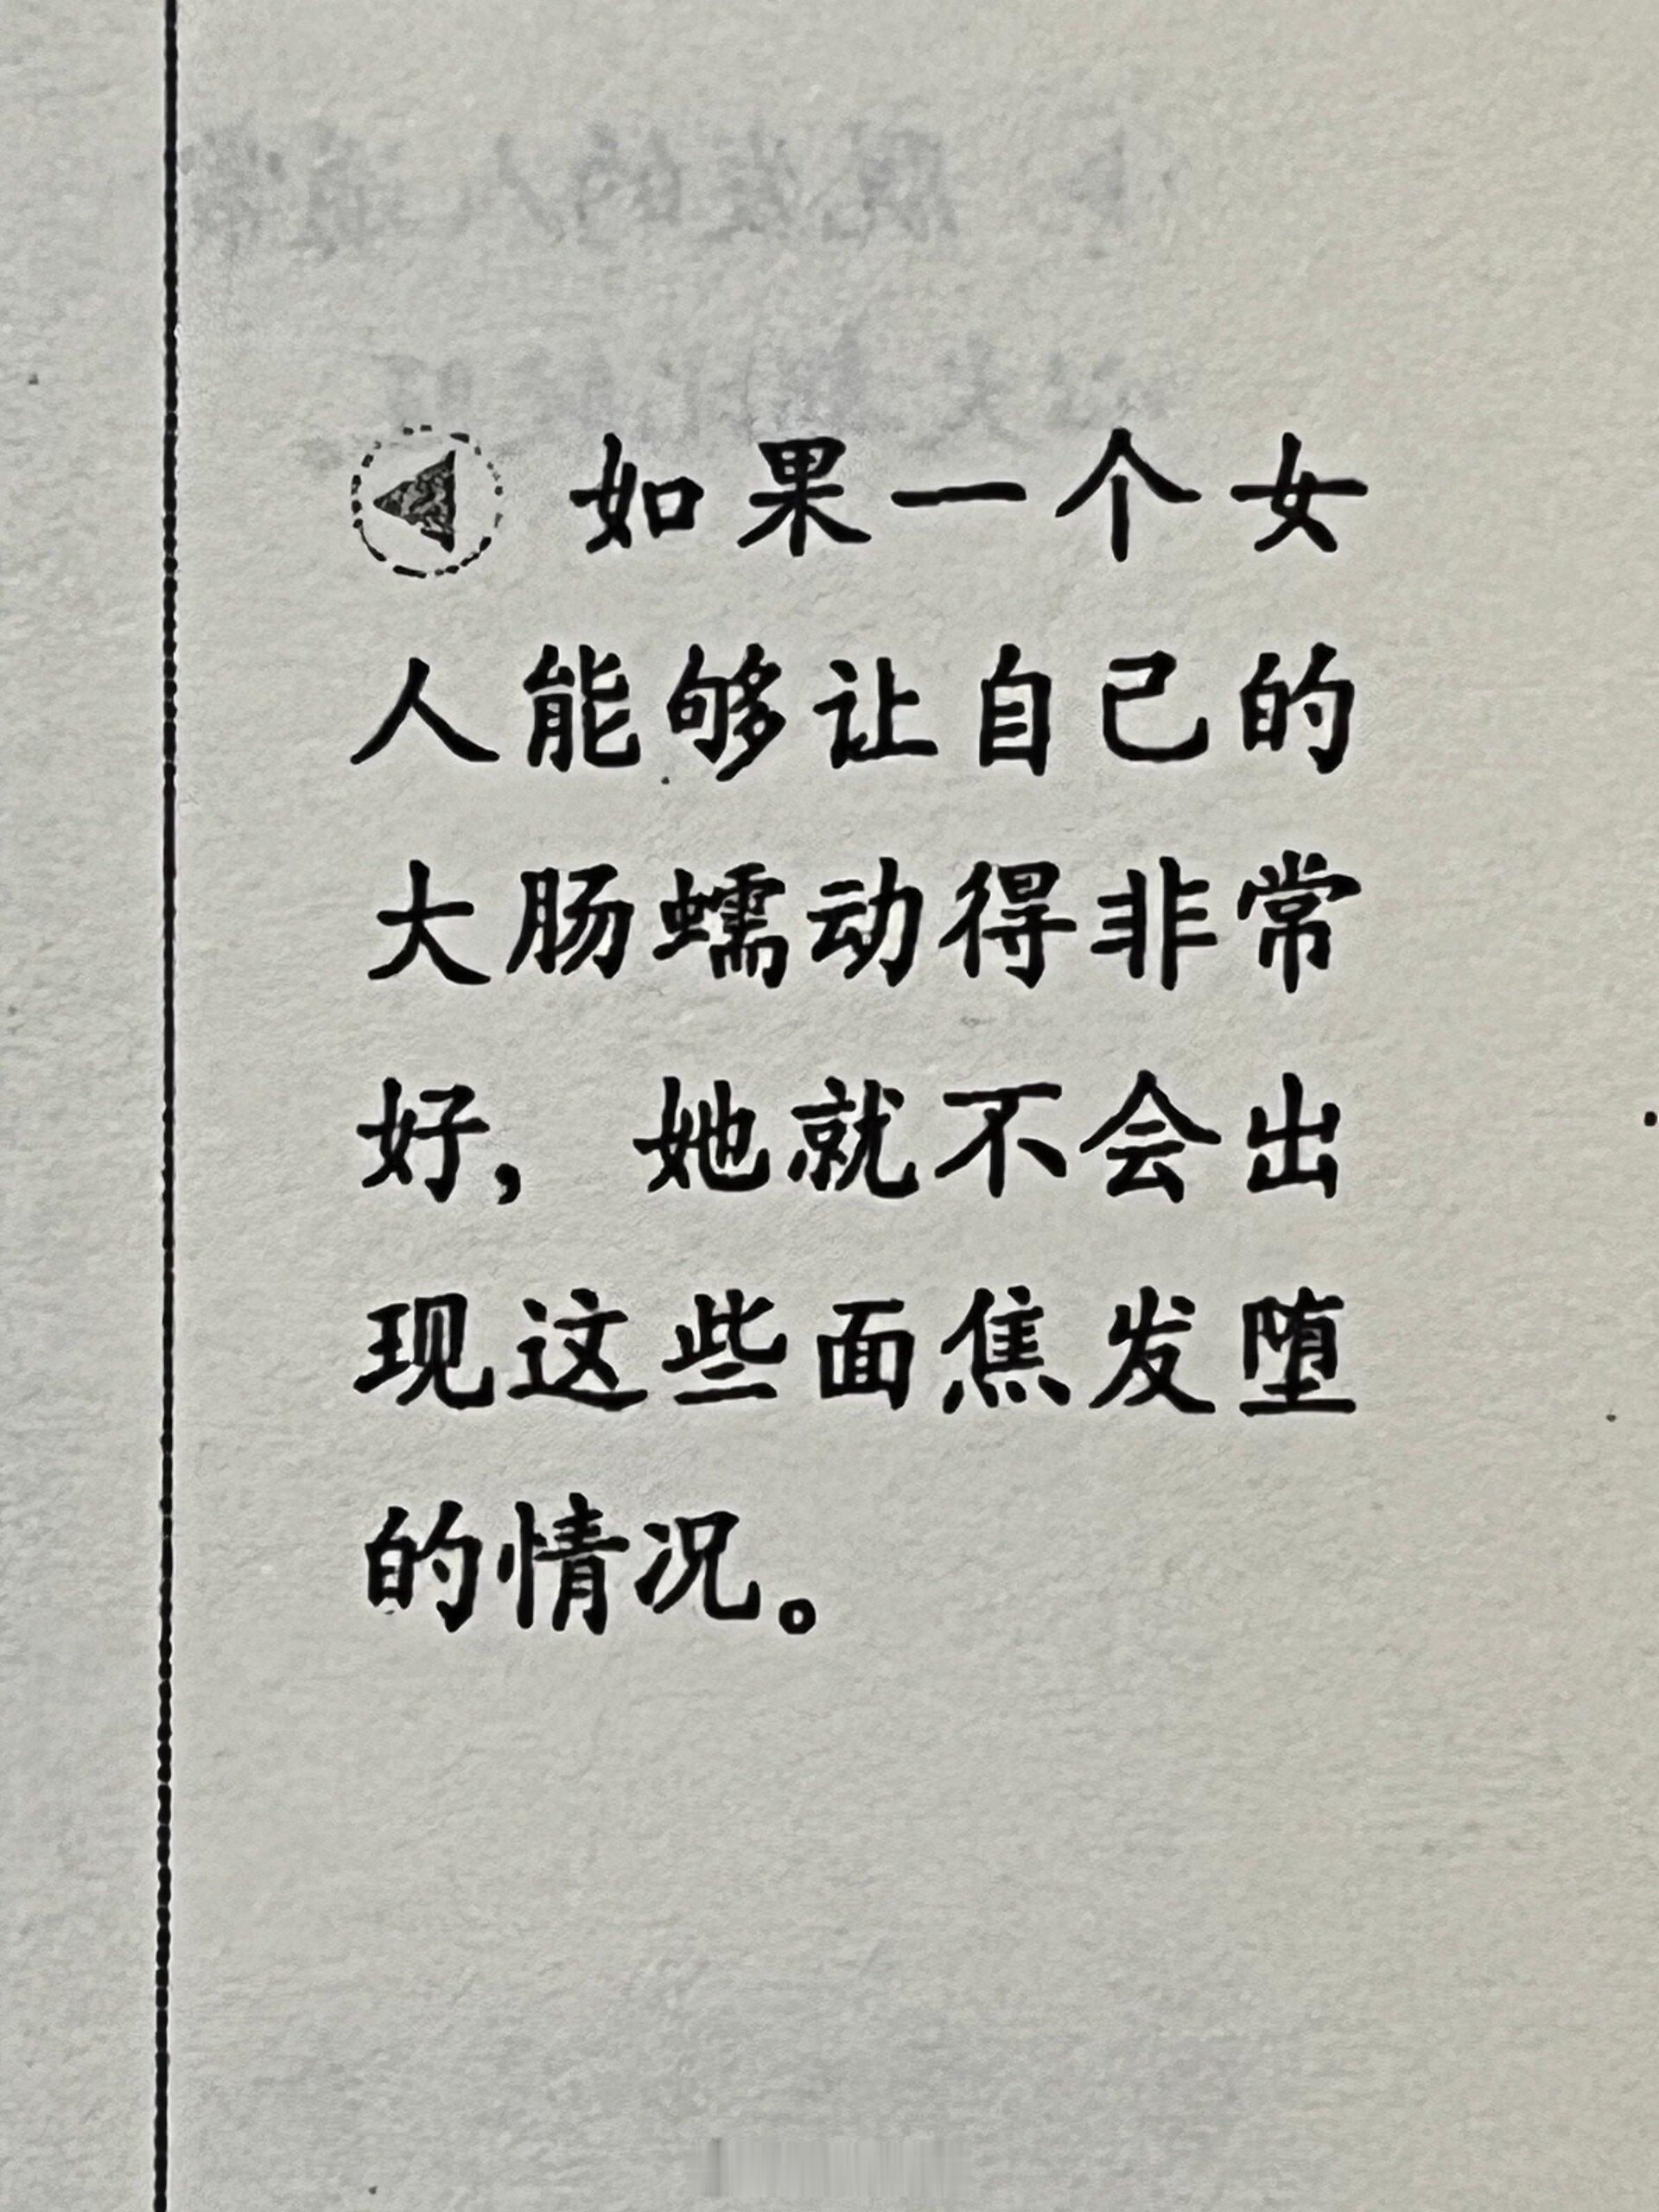 如果一个女
人能够让自己的
大肠蠕动得非常
好，她就不会出
现这些面焦发堕
的情况。